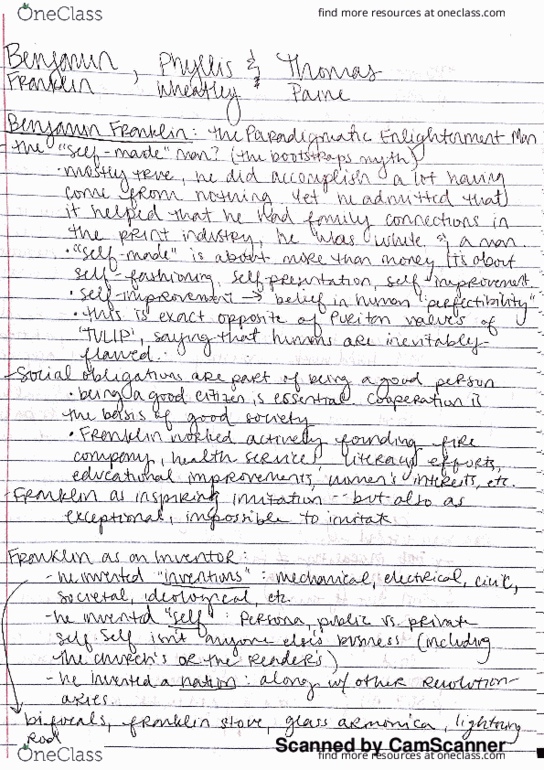 OneClass
find more resources at oneclass.com
Benjamin , Phyllis & Thomas
Franklin Wheatley Paine
Benjamin Franklin: the Paradigmatic Enlightenment Man
- the "self-made" man? (the bootstraps myth)
• mostly true, he did accomplish a lot having
come from nothing. Yet he admitted that
it helped that he had family connections in
the print industry, he was white & a man.
• "self-made" is about more than money, its about
self-fashioning, self-presentation, self-improvement.
• self-improvement → belief in human "perfectibility"
• this is exact opposite of Puritan values of
'TULIP', saying that humans are inevitably
flawed.
- Social obligations are part of being a good person
• being a good citizen is essential. Cooperation is
the basis of good society
• Franklin worked actively founding fire
company, health services, literacy efforts,
educational improvements, women's interests, etc.
- Franklin as inspiring imitation - but also as
exceptional, impossible to imitate
Franklin as an Inventor:
- he invented "inventions": mechanical, electrical, civic,
societal, ideological, etc.
- he invented "self": persona, public vs. private
self. Self isn't anyone else's business (including
the church's or the readers)
- he invented a nation: along w/ other Revolution-
aries.
bifocals, franklin stove, glass armonica, lightning
rod
Scanned by CamScanner
OneClass
find more resources at oneclass.com